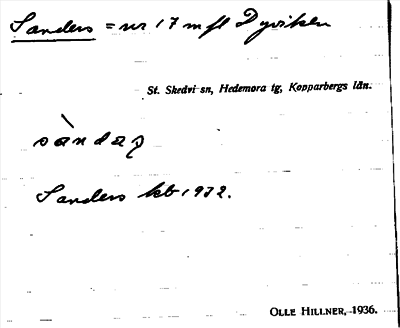 Sanders = nr 17 m fl Dyviken
St. Skedvi sn, Hedemora tg, Kopparbergs län.
Sanders kb 1932.
OLLE HILLNER, 1936.